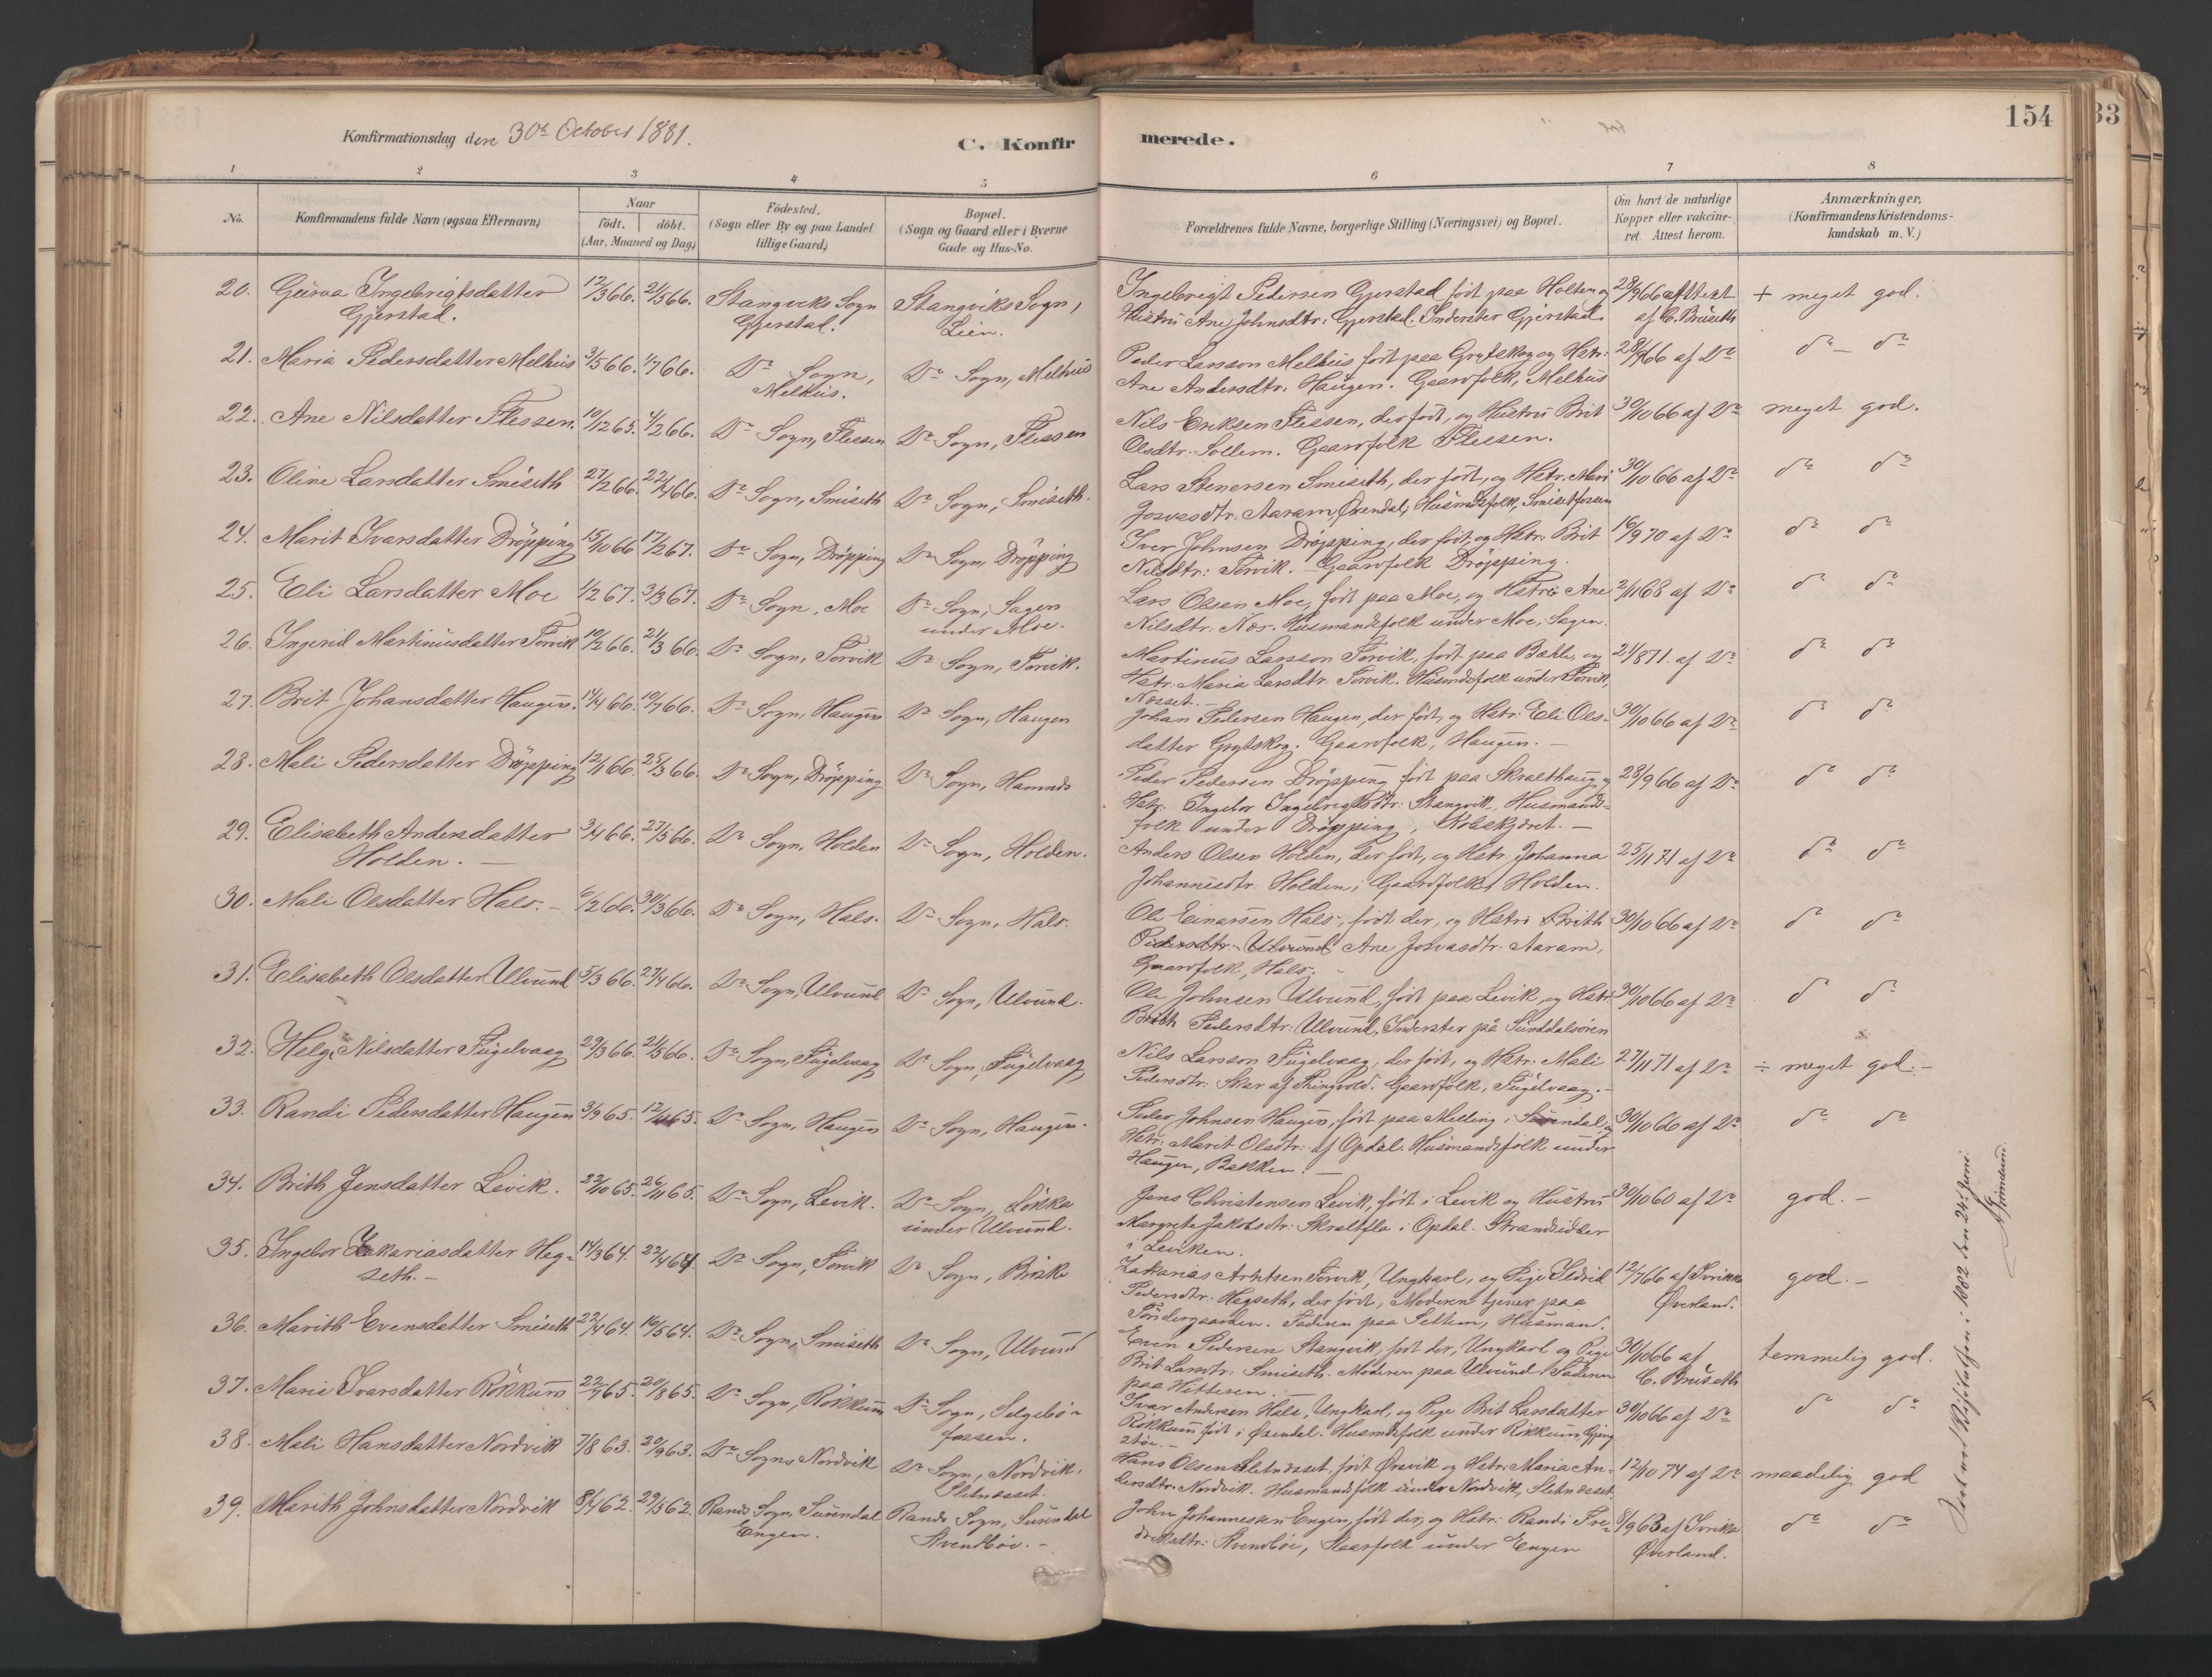 154
33
Konfirmationsdag den 30te October 1881.
C. Konfirmerede.
1 2 3 4 5 6 7 8
No.
Konfirmandens fulde Navn (ogsaa Efternavn)
Naar
födt. döbt.
(Aar, Maaned og Dag)
Födested.
(Sogn eller By og paa Landet
tillige Gaard)
Bopæl.
(Sogn og Gaard eller i Byerne
Gade og Hus-No.
Forældrenes fulde Navne, borgerlige Stilling (Næringsvei) og Bopæl.
Om havt de naturlige
Kopper eller vakcine-
ret Attest herom.
Anmærkninger.
(Konfirmandens Kristendoms-
kundskab m. V.)
20. Guroa Ingebrigtsdatter
Gjerstad.
12/3 66. 21/5 66.
Stangviks Sogn
Gjerstad.
Stangviks Sogn,
Lien.
Ingebrigt Pedersen Gjerstad født paa Holten og
Hustru Ane Johnsdtr: Gjerstad. Inderster Gjerstad.
28/9 66 af Attest
af C. Bruseth
+ meget god.
21. Maria Pedersdatter Melhus 3/5 66. 1/7 66.
Do Sogn,
Melhus.
Do Sogn, Melhus
Peder Larsson Melhus født paa Grytskog og Hstr:
Ane Andersdtr: Haugen. Gaardfolk, Melhus
66 af Do
do — do
22. Ane Nilsdatter Flessen. 10/12 65. 4/2 66.
Do Sogn, Flessen
Do Sogn, Flessen
Nils Eriksen Flessen, der født, og Hustru Brit
Olsdtr: Sollem. Gaardfolk Flessen.
30/10 66 af Do
meget god.
23. Oline Larsdatter Smiseth 27/2 66. 22/4 66.
Do Sogn, Smiseth
Do Sogn, Smiseth.
Lars Stenersen Smiseth, der født, og Hstr: Mari
Josvasdtr: Aaram, Øxendal, Husmdsfolk, Smisetfossen
30/10 66 af Do
do do
24. Marit Ivarsdatter Dröpping 15/10 66 17/2 67.
Do Sogn, Dröpping
Do Sogn, Dröpping
Iver Johnsen Dröpping, der født, og Hstr: Brit
Nilsdtr: Torvik. - Gaardfolk Dröpping.
16/9 70 af Do
do do
25. Eli Larsdatter Moe 1/2 67. 3/3 67.
Do Sogn, Moe
Do Sogn, Sagen
under Moe.
Lars Olsen Moe, født paa Moe, og Hstru Ane
Nilsdtr: Næs. Husmandsfolk under Moe, Sagen.
2/11 68 af Do
do do
26. Ingerid Martinusdatter Torvik 10/2 66. 21/3 66.
Do Sogn, Torvik
Do Sogn, Torvik.
Martinus Larsson Torvik, født paa Bække, og
Hstr: Maria Larsdtr: Torvik. Husmdsfolk under Torvik,
Næsset.
21/8 71. af Do
do do
27. Brit Johansdatter Haugen. 14/4 66. 10/7 66.
Do Sogn, Haugen
Do Sogn, Haugen
Johan Pedersen Haugen, der født, og Hstr: Eli Ols-
datter Grytskog. Gaardfolk, Haugen. —
30/10 66 af Do
do do
28. Mali Pedersdatter Dröpping 12/1 66. 25/3 66.
Do Sogn, Dröpping
Do Sogn, Hamnes
Peder Pedersen Dröpping født paa Skralthaug og
Hstr: Ingebor Ingebrigtsdtr: Stangvik, Husmands-
folk under Dröpping, Kobskjæret. —
28/9 66 af Do
do do
29. Elisabeth Andersdatter
Holden. —
3/4 66. 27/5 66.
Do Sogn, Holden
Do Sogn, Holden.
Anders Olsen Holden, der født, og Hstr: Johanna
Johannesdtr: Holden; Gaardfolk, Holden.
25/11 71 af Do
do do
30. Mali Olsdatter Hals. — 6/2 66. 30/3 66.
Do Sogn, Hals.
Do Sogn, Hals.
Ole Einarsen Hals, født der, og Hstru Brith
Pedersdtr: Ulvund Ane Josvasdtr: Aaram,
Gaardfolk, Hals.
30/10 66 af Do
do do
31. Elisabeth Olsdatter Ulvund 5/3 66. 27/4 66.
Do Sogn, Ulvund
Do Sogn, Ulvund.
Ole Johnsen Ulvund, født paa Levik, og Hstr:
Brith Pedersdtr: Ulvund, Inderster på Sunddalsören
30/10 66 af Do
do do
32. Helge Nilsdatter Fugelvaag 29/3 66. 21/5 66.
Do Sogn, Fugelvaag
Do Sogn, Fugelvaag
Nils Larsson Fugelvaag, der født, og Hstr: Mali
Pedersdtr: Skar af Thingvold. Gaardfolk, Fugelvaag. —
27/11 71 af Do
÷ meget god. —
33. Randi Pedersdatter Haugen 3/9 65. 12/11 65.
Do Sogn, Haugen
Do Sogn, Haugen.
Peder Johnsen Haugen, født paa Melling i Surendal, og
Hstr: Marit Olsdtr: af Opdal. Husmandsfolk under
Haugen, Bakken. —
30/10 66 af Do
do do
34. Brith Jensdatter Levik. 22/10 65. 26/11 65.
Do Sogn, Levik.
Do Sogn, Løkka
under Ulvund.
Jens Christensen Levik, født i Levik og Hustru
Margrete Jakobsdtr: Skraltfla i Opdal. Strandsidder
i Leviken.
30/10 60 af Do
god. —
35. Ingebor Zakariasdatter Heg-
seth. —
14/3 64. 22/4 64.
Do Sogn, Torvik
Do Sogn, Briske
Zakarias Arntsen Torvik, Ungkarl, og Pige Sildrid
Pedersdtr: Hegseth, der født, Moderen tjener paa
Tøndergaarden. Faderen paa Settem, Husmand.
12/7 66 af
Øverland.
god. —
36. Marith Evensdatter Smiseth 22/4 64. 16/5 64.
Do Sogn, Smiseth
Do Sogn, Ulvund
Even Pedersen Stangvik, født der, Ungkarl og Pige
Brit Larsdtr: Smiseth. Moderen paa Ulvund. Faderen
paa Hitteren. —
30/10 66 af
C. Bruseth
temmelig god.
37. Marie Ivarsdatter Rökkum 22/7 65. 20/8 65.
Do Sogn, Rökkum
Do Sogn, Selgebö-
fossen.
Ivar Andersen Hals, Ungkarl, og Pige Brit Larsdatter
Rökkum født i Øxendal. Husmdsfolk under Rökkum,
30/10 66 af Do
do do
38. Mali Hansdatter Nordvik 7/8 63. 20/9 63.
Do Sogns Nordvik
Do Sogn, Nordvik,
Sletnæsset.
Hans Olsen Sletnæsset, født Ørsvik og Hstr: Maria An-
dersdtr: Nordvik. Husmandsfolk under Nordvik, Sletnæsset.
12/10 74 af Do
maadelig god
39. Marith Johnsdatter Nordvik 8/4 62. 29/5 62.
Rands Sogn, Surendal
Engen.
Rands Sogn, Surendal
Svendböe. —
John Johannessen Engen, født der, og Hstr: Randi Fre-
driksdtr: Svendböe, Gaardfolk under Engen
8/9 63 af
Øverland.
do do
i 1882 den 24. Juni.